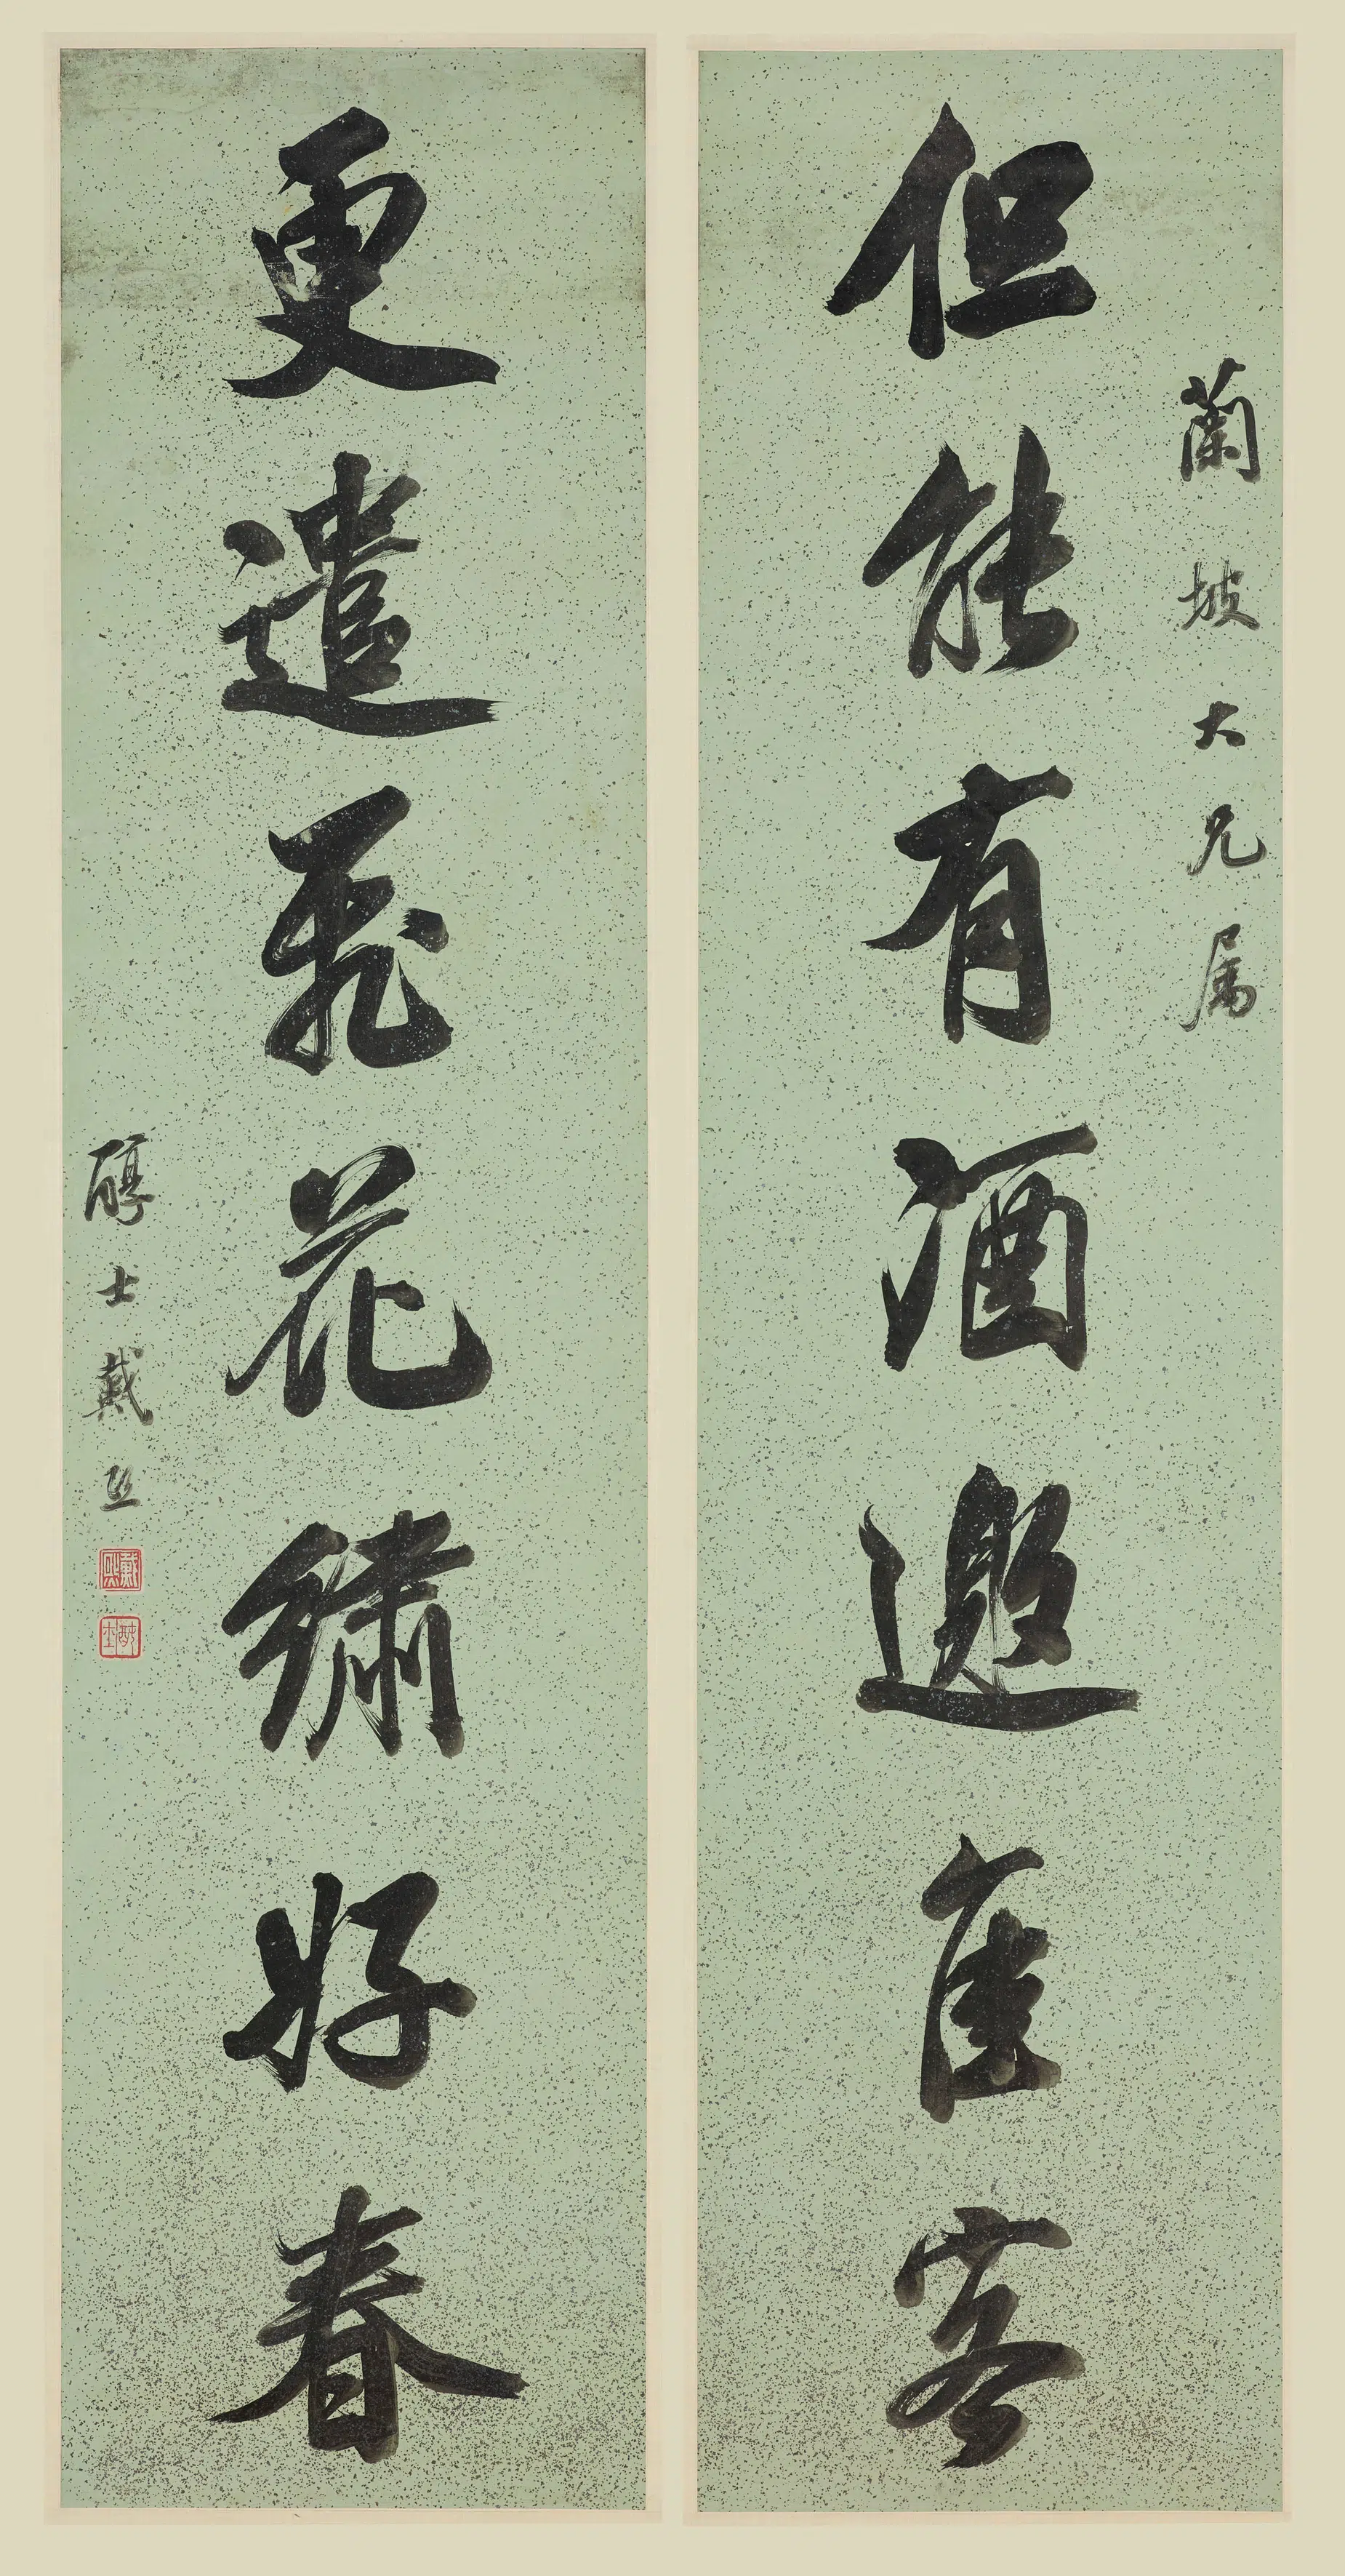 蘭坡大兄属
但能有酒邀佳客
更遣飛花繡好春
醇士戴熙
戴熙
醇士